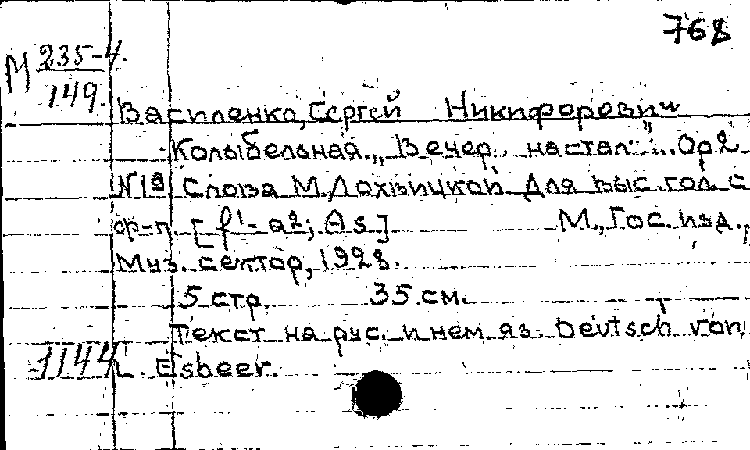 768
М 235-4.
149.
Василенко, Сергей Никифорович
Колыбельная „Вечер настал“. Op 2
N 1a Слова М. Лохвицкой Для выс. гол. с
ф-п. [f¹- a2; As] М., Гос. изд.,
Муз. сектор, 1928.
5 стр. 35 см.
Текст на рус. и нем. яз. Deutsch von
1144 L. Esbeer.